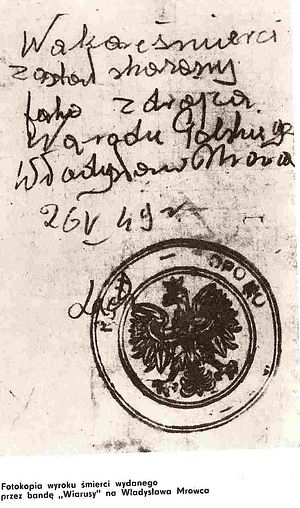 Na karę śmierci
został skazany
jako zdrajca
Narodu Polskiego
Władysław Mrowca
26 V 49 r
OPORU
Fotokopia wyroku śmierci wydanego
przez bandę „Wiarusy” na Władysława Mrowca